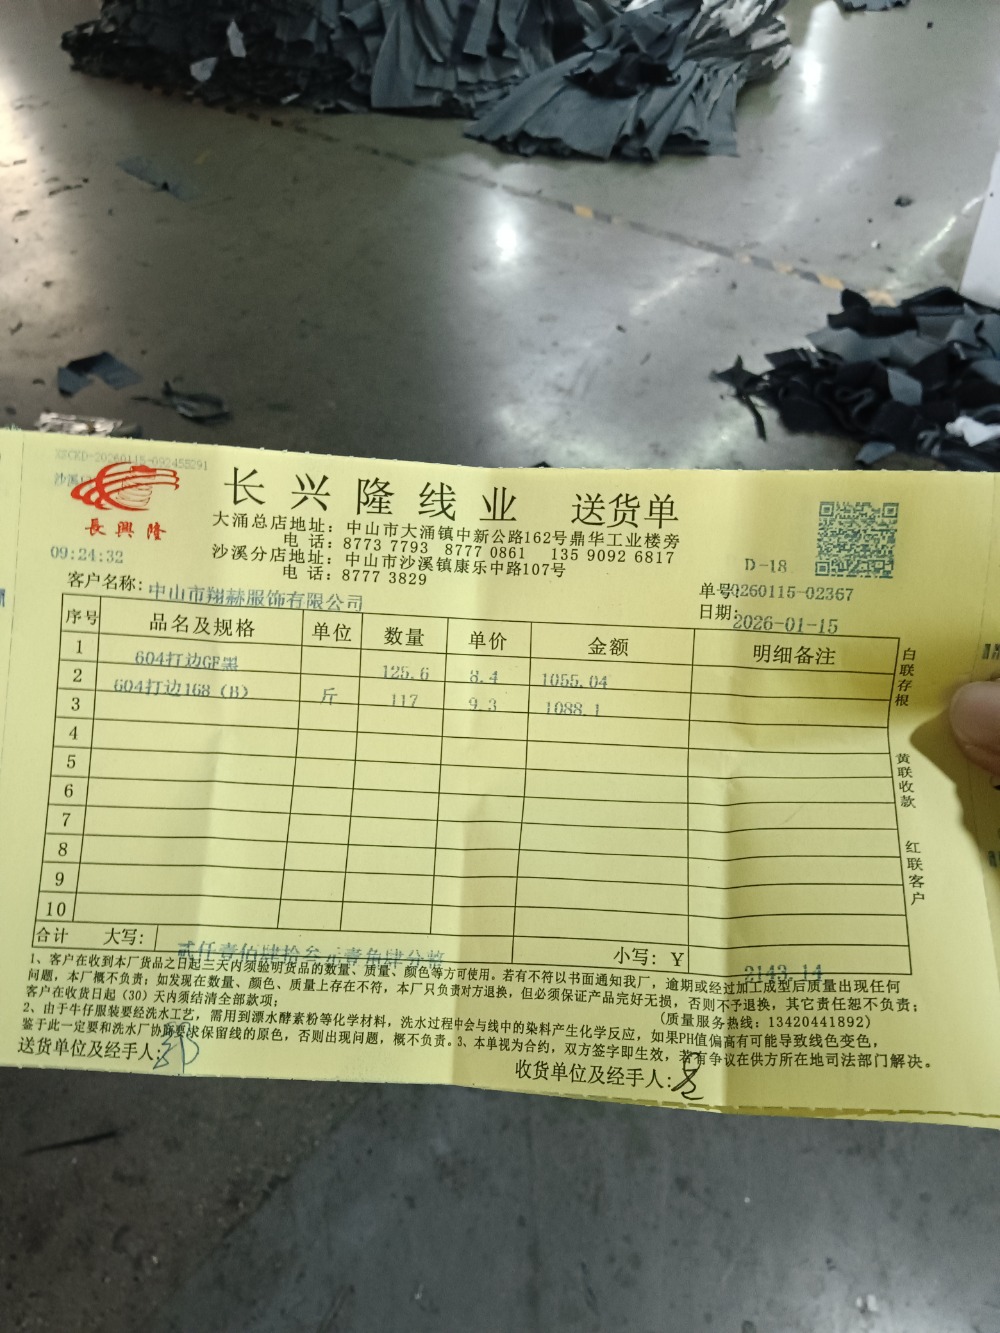 XSCKD-20260115-092455291
沙溪
長興隆
09:24:32
长兴隆线业 送货单
大涌总店地址：中山市大涌镇中新公路162号鼎华工业楼旁
电话：8773 7793 8777 0861 135 9092 6817
沙溪分店地址：中山市沙溪镇康乐中路107号
电话：8777 3829
D-18
单号：0260115-02367
日期：2026-01-15
客户名称：中山市翔赫服饰有限公司
序号 品名及规格 单位 数量 单价 金额 明细备注
1 604打边GF黑 125.6 8.4 1055.04
2 604打边168（B） 斤 117 9.3 1088.1
3
4
5
6
7
8
9
10
合计 大写：贰仟壹佰肆拾叁元壹角肆分整 小写：Y 2143.14
白联存根
黄联收款
红联客户
1、客户在收到本厂货品之日起三天内须验明货品的数量、质量、颜色等方可使用。若有不符以书面通知我厂，逾期或经过加工成型后质量出现任何
问题，本厂概不负责；如发现在数量、颜色、质量上存在不符，本厂只负责对方退换，但必须保证产品完好无损，否则不予退换，其它责任恕不负责；
客户在收货日起（30）天内须结清全部款项； （质量服务热线：13420441892）
2、由于牛仔服装要经洗水工艺，需用到漂水酵素粉等化学材料，洗水过程中会与线中的染料产生化学反应，如果PH值偏高有可能导致线色变色，
鉴于此一定要和洗水厂协商要求保留线的原色，否则出现问题，概不负责。3、本单视为合约，双方签字即生效，若有争议在供方所在地司法部门解决。
送货单位及经手人：
收货单位及经手人：